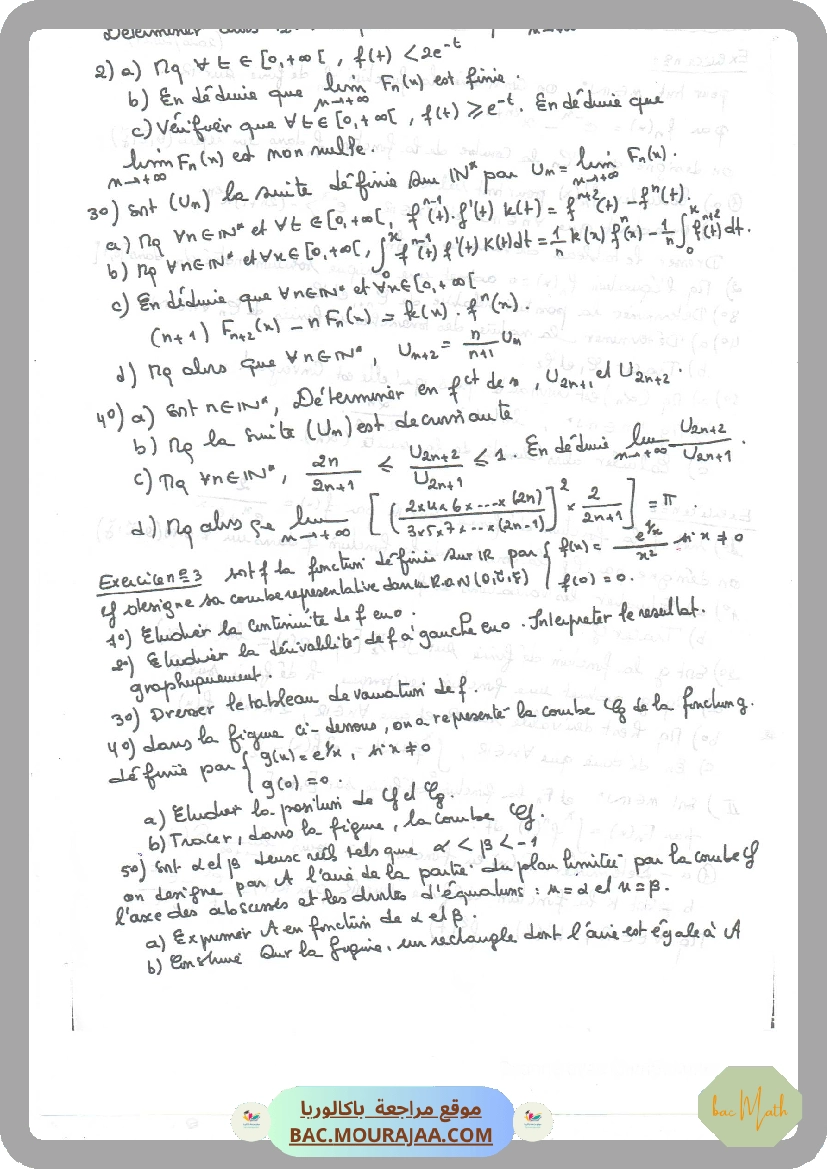 2) a) Mq ∀ t ∈ [0,+∞[ , f(t) < 2e^-t
b) En déduire que lim n→+∞ Fn(x) est finie.
c) Vérifier que ∀ t ∈ [0,+∞[ , f(t) ≥ e^-t. En déduire que
lim n→+∞ Fn(x) est non nulle.
3°) Soit (Un) la suite définie sur IN* par Un = lim n→+∞ Fn(x).
a) Mq ∀n∈IN* et ∀t ∈ [0,+∞[, f^n-1(t).f'(t) k(t) = f^n+2(t) - f^n(t).
b) Mq ∀n∈IN* et ∀x∈[0,+∞[, ∫_0^x f^n-1(t) f'(t) k(t)dt = 1/n k(x) f^n(x) - 1/n ∫_0^x f^n+2(t)dt.
c) En déduire que ∀n∈IN* et ∀x∈[0,+∞[
(n+1) Fn+2(x) - n Fn(x) = k(x). f^n(x).
d) Mq alors que ∀n∈IN*, Un+2 = n/n+1 Un
4°) a) Soit n∈IN*, Déterminer en fct de n, U2n+1 et U2n+2.
b) Mq la suite (Un) est decroissante
c) Mq ∀n∈IN*, 2n/2n+1 ≤ U2n+2/U2n+1 ≤ 1. En déduire lim n→+∞ U2n+2/U2n+1.
d) Mq alors qe lim n→+∞ [(2x4x6x...x(2n)/3x5x7x...x(2n-1))^2 x 2/2n+1] = π
Exercice n=3 soit f la fonction définie sur IR par { f(x) = e^1/x / x² si x ≠ 0
f(0) = 0.
Cf designe sa courbe representative dans un R.o.N (O,i,j)
1°) Etudier la continuité de f en 0.
2°) Etudier la dérivabilité de f à gauche en 0. Interpreter le resultat.
graphiquement.
3°) Dresser le tableau de variation de f.
4°) dans la figure ci-dessous, on a representé la courbe Cg de la fonction g.
définie par { g(x) = e^1/x, si x ≠ 0
g(0) = 0.
a) Etudier la position de Cf et Cg.
b) Tracer, dans la figure, la courbe Cf.
5°) Soit α et β deux réels tels que α < β < -1
on designe par A l'aire de la partie du plan limitée par la courbe Cf
l'axe des abscisses et les droites d'équations : x = α et x = β.
a) Exprimer A en fonction de α et β.
b) Construire sur la figure, un rectangle dont l'aire est égale à A
موقع مراجعة باكالوريا
BAC.MOURAJAA.COM
bac Math